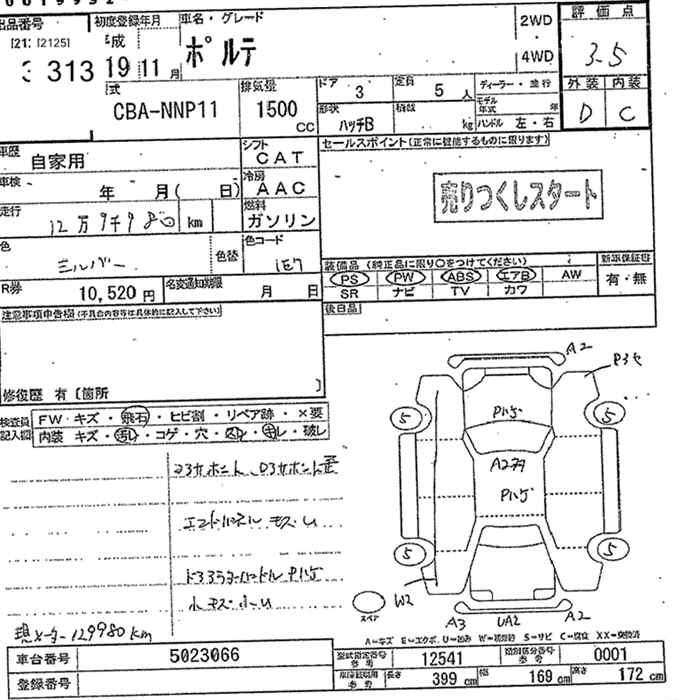 出品番号 初度登録年月 車名・グレード 2WD 評価点
3 313 19 11月 ポルテ 4WD 3.5
型式 CBA-NNP11 排気量 1500 CC ドア 3 定員 5 人 ディーラー・並行 外装 内装
形状 ハッチB 積載 kg モデル年式 年 ハンドル 左・右 D C
車歴 自家用 シフト CAT セールスポイント(正常に機能するものに限ります)
車検 年 月( 日) 冷房 AAC 売りつくしスタート
走行 12万9千980 km 燃料 ガソリン
色 シルバー 色替 色コード 1E7
装備品(純正品に限り○をつけてください) 新車保証書
PS PW ABS エアB AW 有・無
R券 10,520 円 名変通知期限 月 日 SR ナビ TV カワ
注意事項申告欄(不具合内容等は具体的に記入して下さい) 後日品
修復歴 有〔箇所 〕
検査員記入欄 FW キズ・飛石・ヒビ割・リペア跡・×要
内装 キズ・汚レ・コゲ・穴・・キレ・破レ
A2
Pハゲ
5 5
Pハゲ
5 5
スペア W2 A3 UA2 A2
エンドパネル
現メーター129980km
A=キズ E=エクボ U=凹み W=補修跡 S=サビ C=腐食 XX=交換済
車台番号 5023066 型式指定番号 参考 12541 類別区分番号 参考 0001
登録番号 長さ 399 cm 幅 169 cm 高さ 172 cm